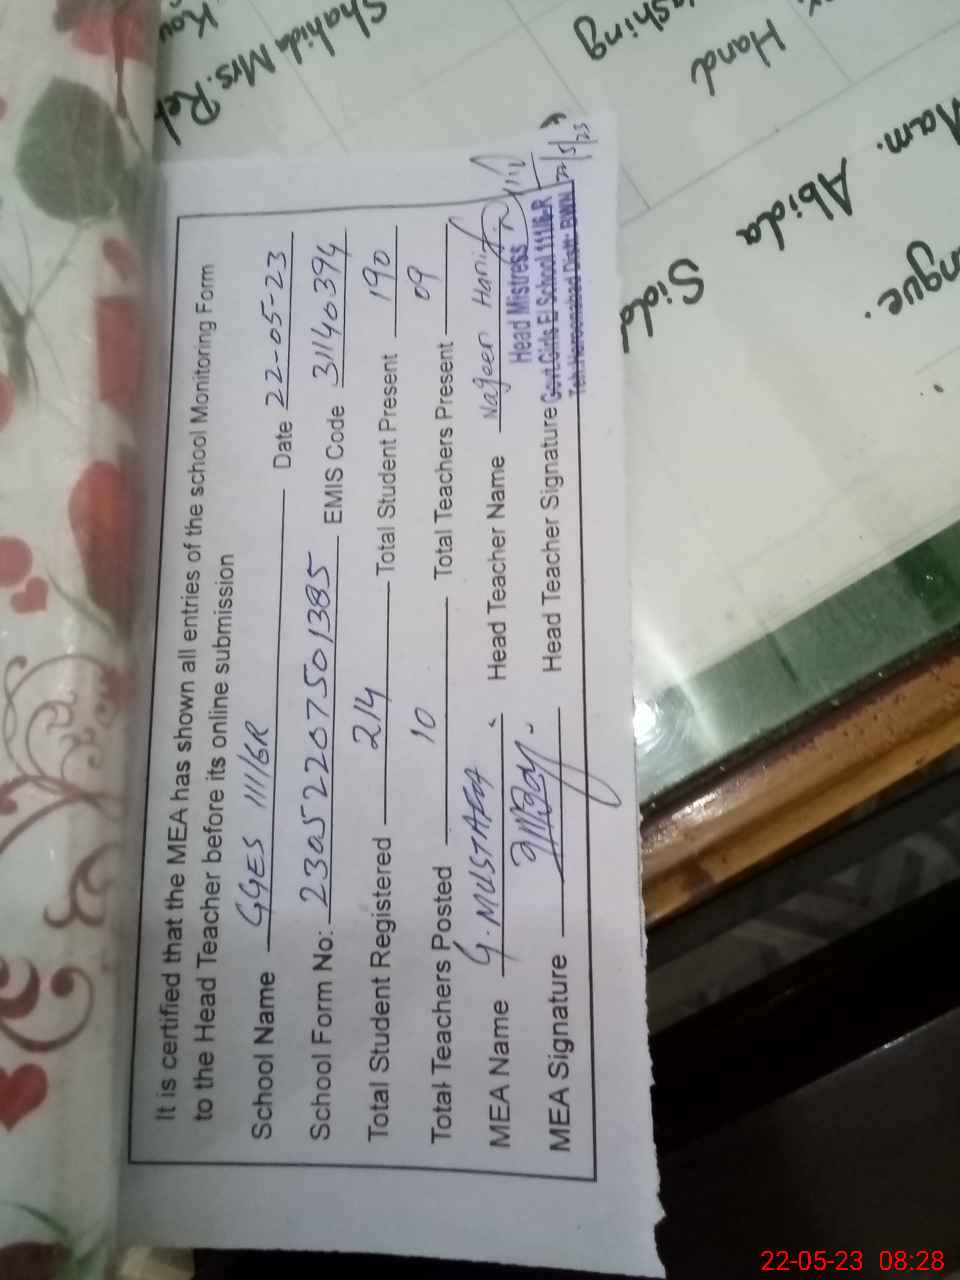 It is certified that the MEA has shown all entries of the school Monitoring Form
to the Head Teacher before its online submission
School Name GGES 111/6R Date 22-05-23
School Form No: 23052207501385 EMIS Code 31140394
Total Student Registered 214 Total Student Present 190
Total Teachers Posted 10 Total Teachers Present 09
MEA Name G. MUSTAFA Head Teacher Name Nageen Hanif
MEA Signature Head Teacher Signature
Head Mistress
Govt. Girls El School 111/6-R
Teh. Haroonabad Distt: BWN
22/5/23
Shahida Mrs. Reh
Kou
ashing
Hand
Mam. Abida
Sidd
ngue.
22-05-23 08:28